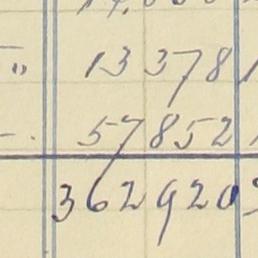 " 13378
57852
362920